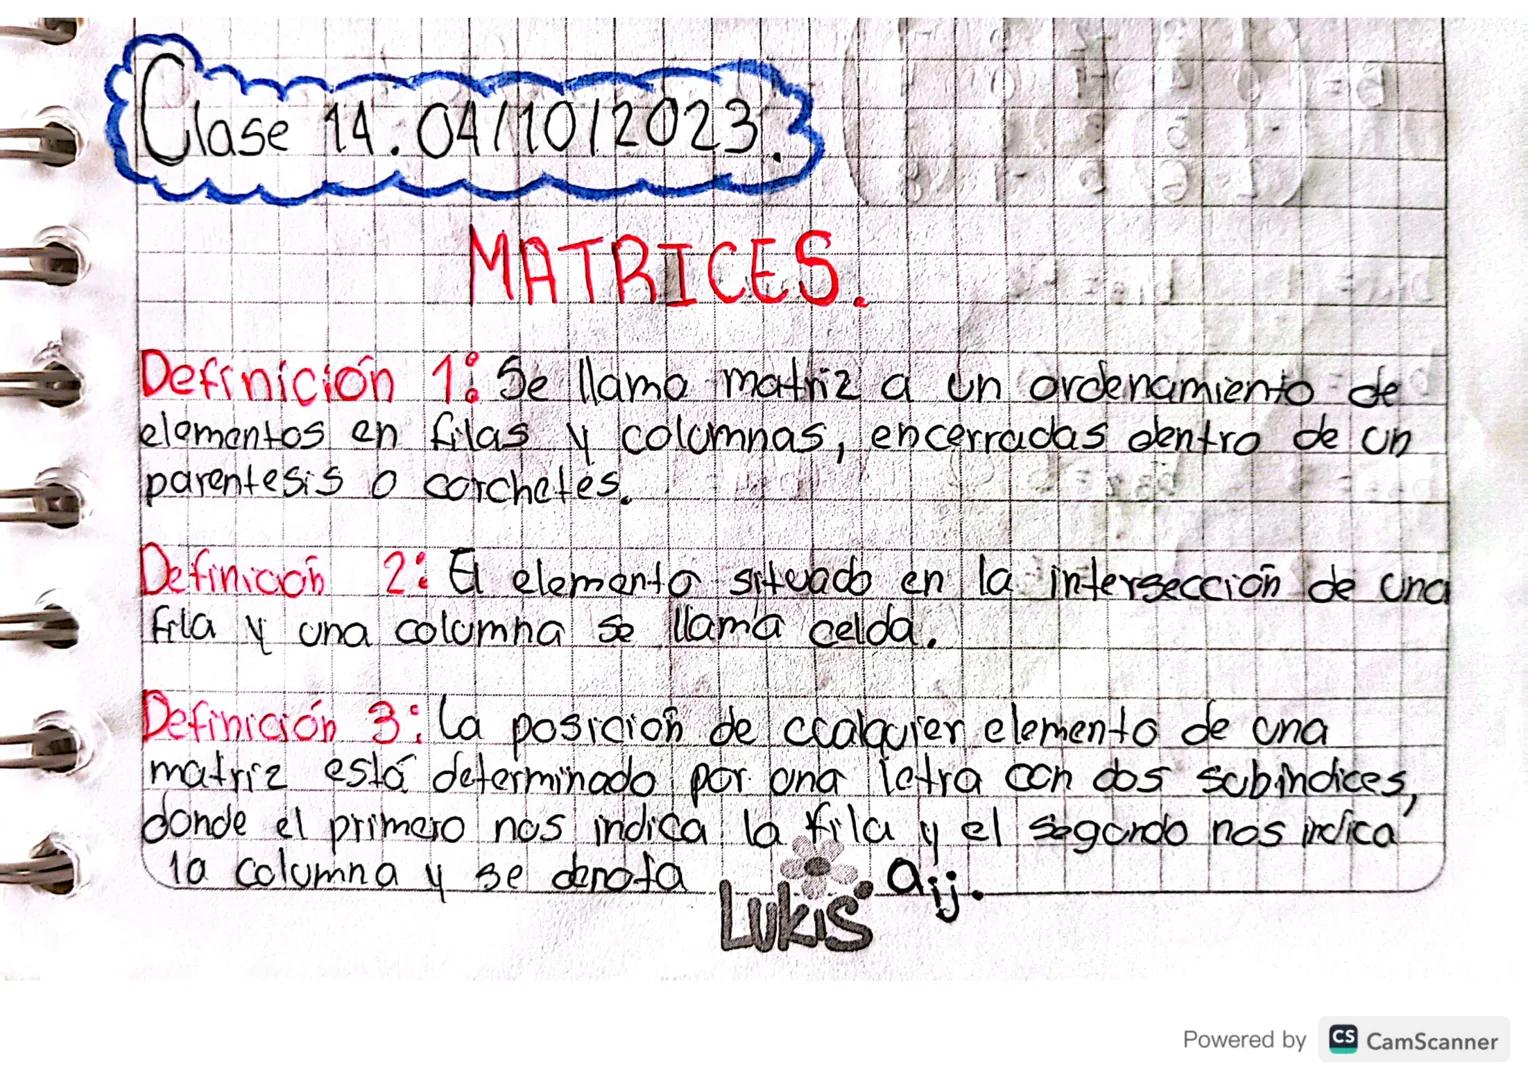 Clase 14. 04/10/2023.
MATRICES.
Definición 1: Se llama matriz a un ordenamiento de
elementos en filas y columnas, encerradas dentro de un
parentesis o corchetes.
Definición 2: El elemento situado en la intersección de una
fila y una columna se llama celda.
Definición 3: La posición de cualquier elemento de una
matriz está determinado por una letra con dos subindices,
donde el primero nos indica la fila y el segundo nos indica
la columna y se denota aij.
LUKIS
Powered by CS CamScanner